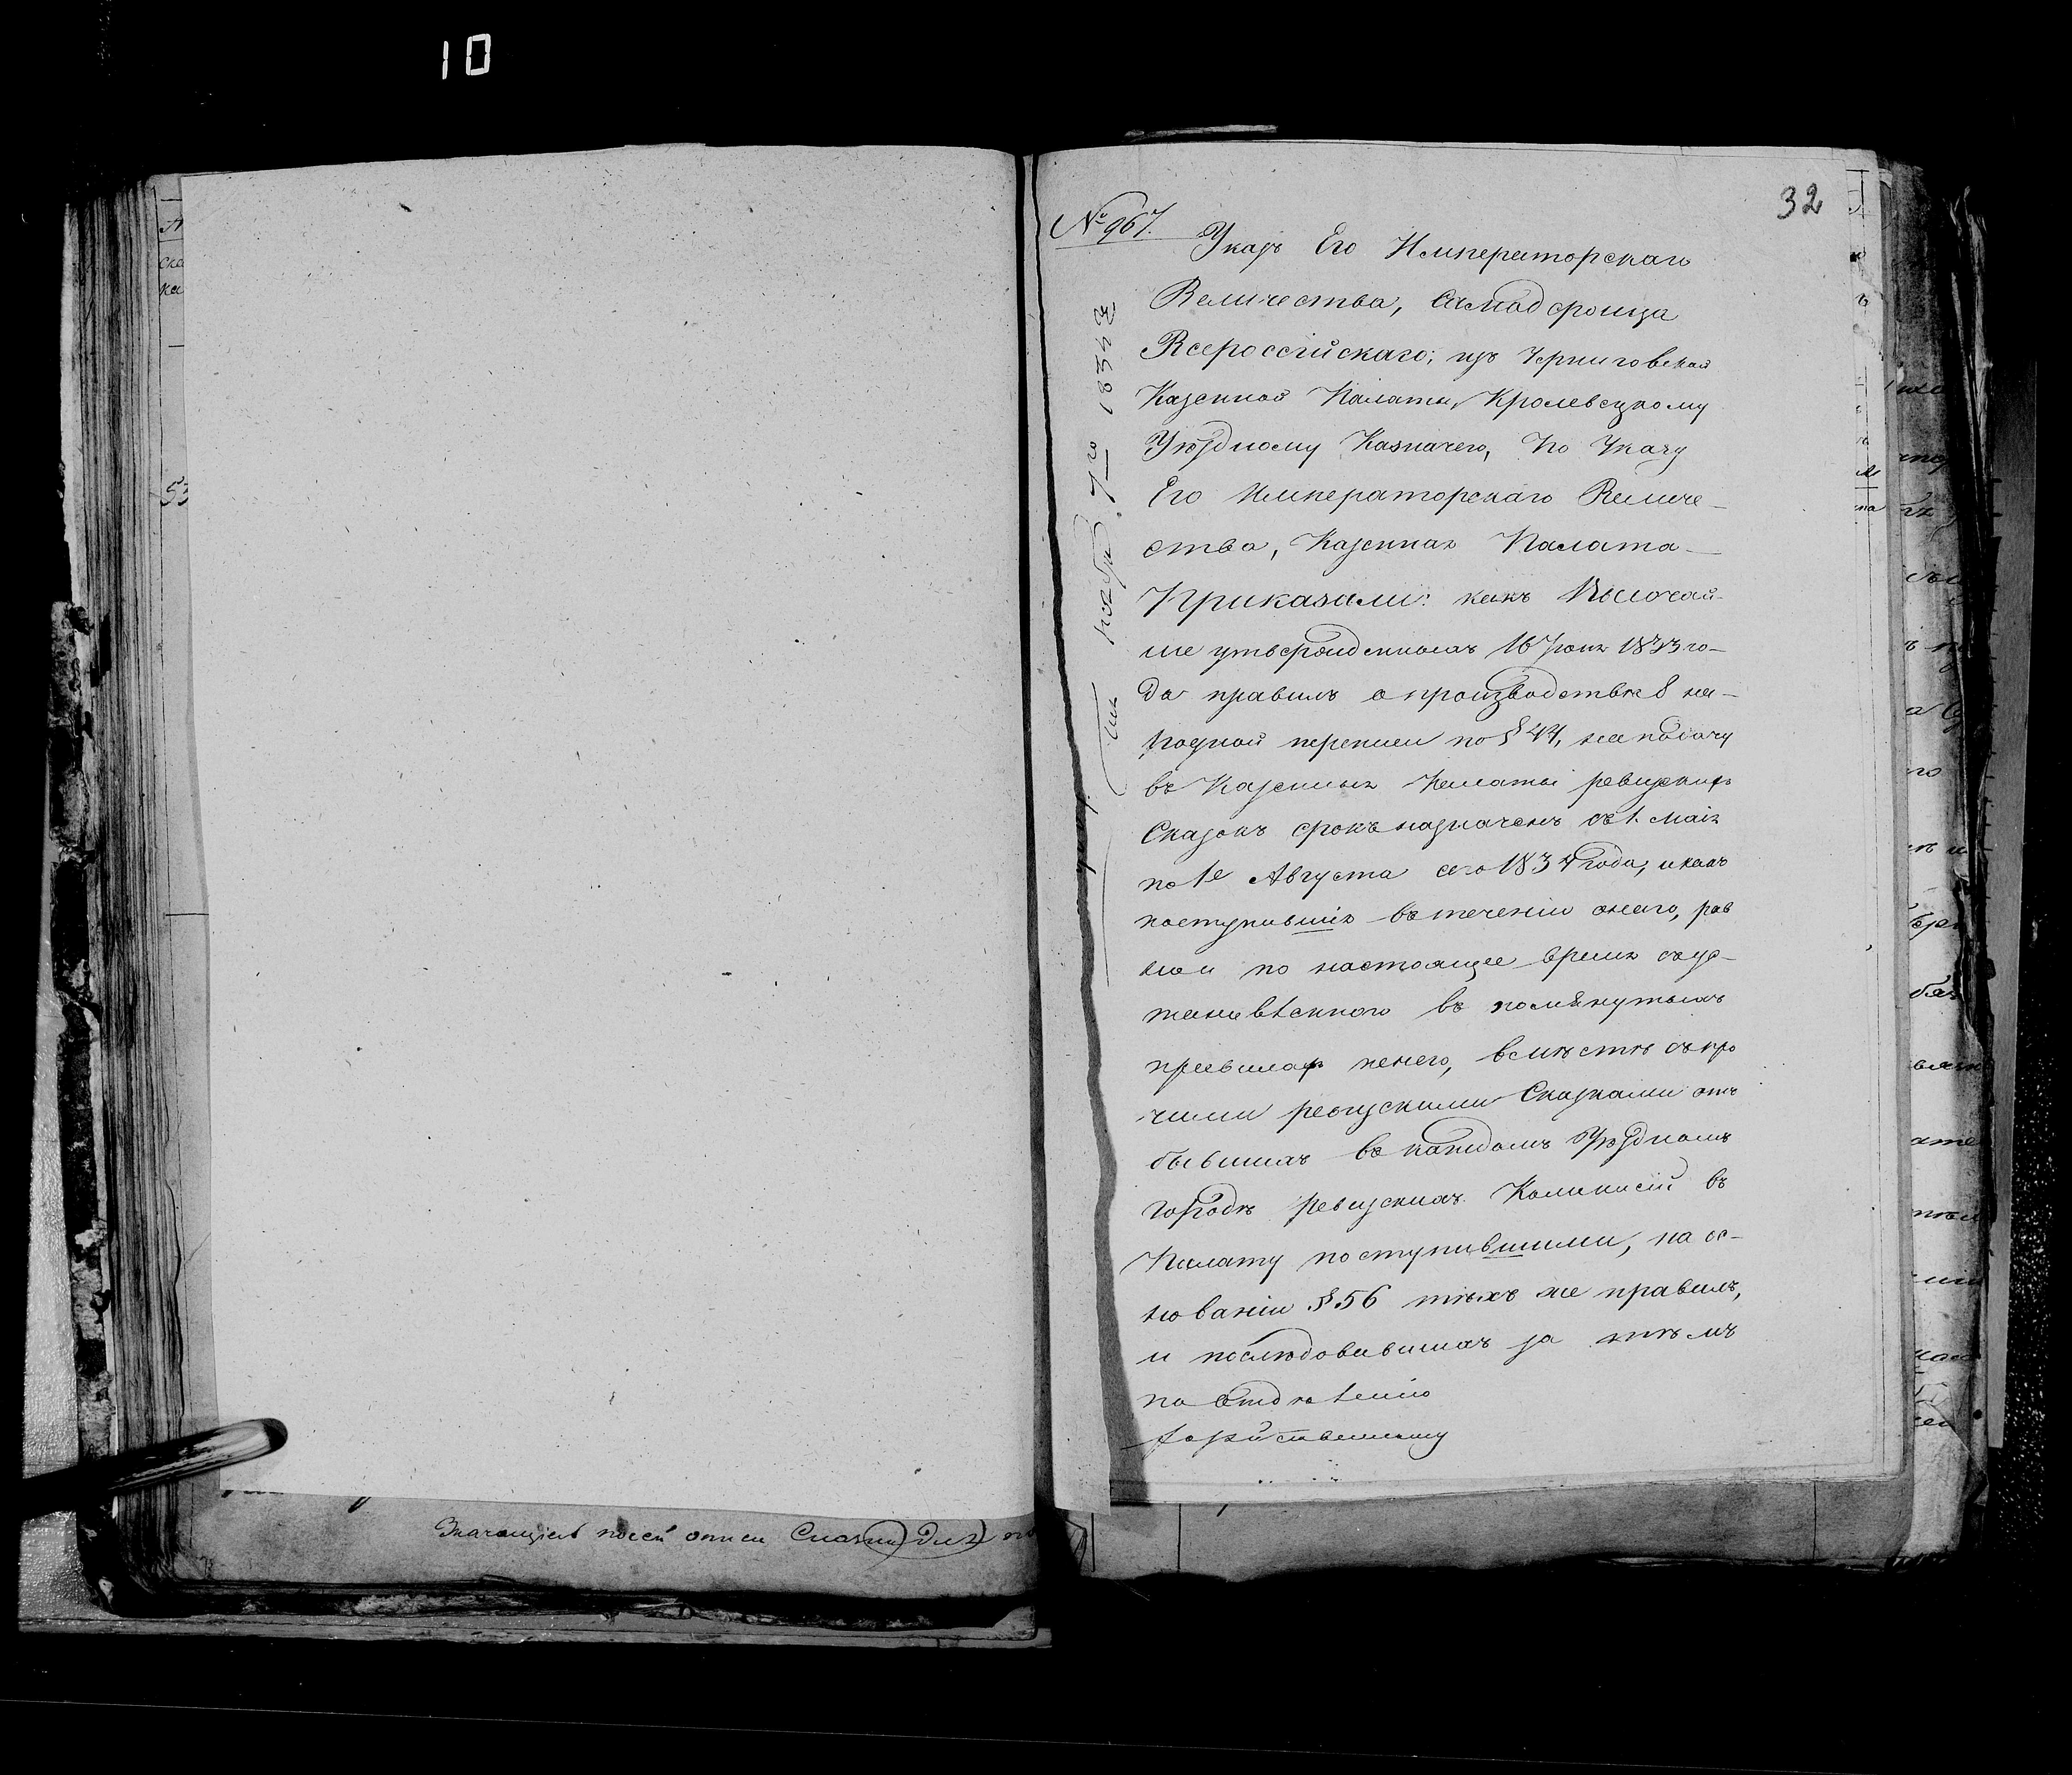 10
32
№ 967.
Указъ Его Императорскаго
Величества, Самодержца
Всероссійскаго; изъ Черниговской
Казенной Палаты, Кролевецкому
Уѣздному Казначею, По Указу
Его Императорскаго Величе-
ства, Казенная Палата
Приказали: какъ Высочай-
ше утвержденныхъ 16 Іюня 1833 го-
да правилъ о производствѣ 8 на-
родной переписи по § 44, на подачу
въ Казенныя Палаты ревизскихъ
Сказокъ срокъ назначенъ съ 1. Маія
по 1е Августа сего 1834 года, и какъ
поступившія въ теченіи онаго, рав
но и по настоящее время съ ус-
тановленного въ помянутыхъ
правилахъ пенею, вмѣстѣ съ про
чими ревизскими Сказками отъ
бывшихъ въ каждомъ Уѣздномъ
городѣ ревизскихъ Коммисій въ
Палату поступившими, на ос-
нованіи § 56 тѣхъ же правилъ,
и послѣдовавшихъ за тѣмъ
по Отдѣленію
ноября 7го 1834
Значащіеся по сей описи Сказки для